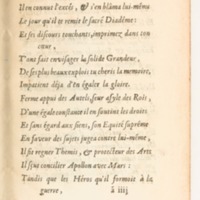 Il en connut l'excés, & s'en blâma lui-même
Le jour qu'il te remit le sacré Diadême:
Et ses discours touchants, imprimez dans ton
cœur,
T'ont fait envisager la solide Grandeur,
De ses plus beaux exploits tu cheris la memoire,
Impatient déja d'en égaler la gloire.
Ferme appui des Autels, seur asyle des Rois,
D'une égale constance il en soutint les droits
Et sans égard aux siens, son Equité suprême
En faveur des sujets jugea contre lui-même,
Il fit regner Themis, & protecteur des Arts
Il sçut concilier Apollon avec Mars:
Tandis que les Héros qu'il formoit à la
guerre, à iiij